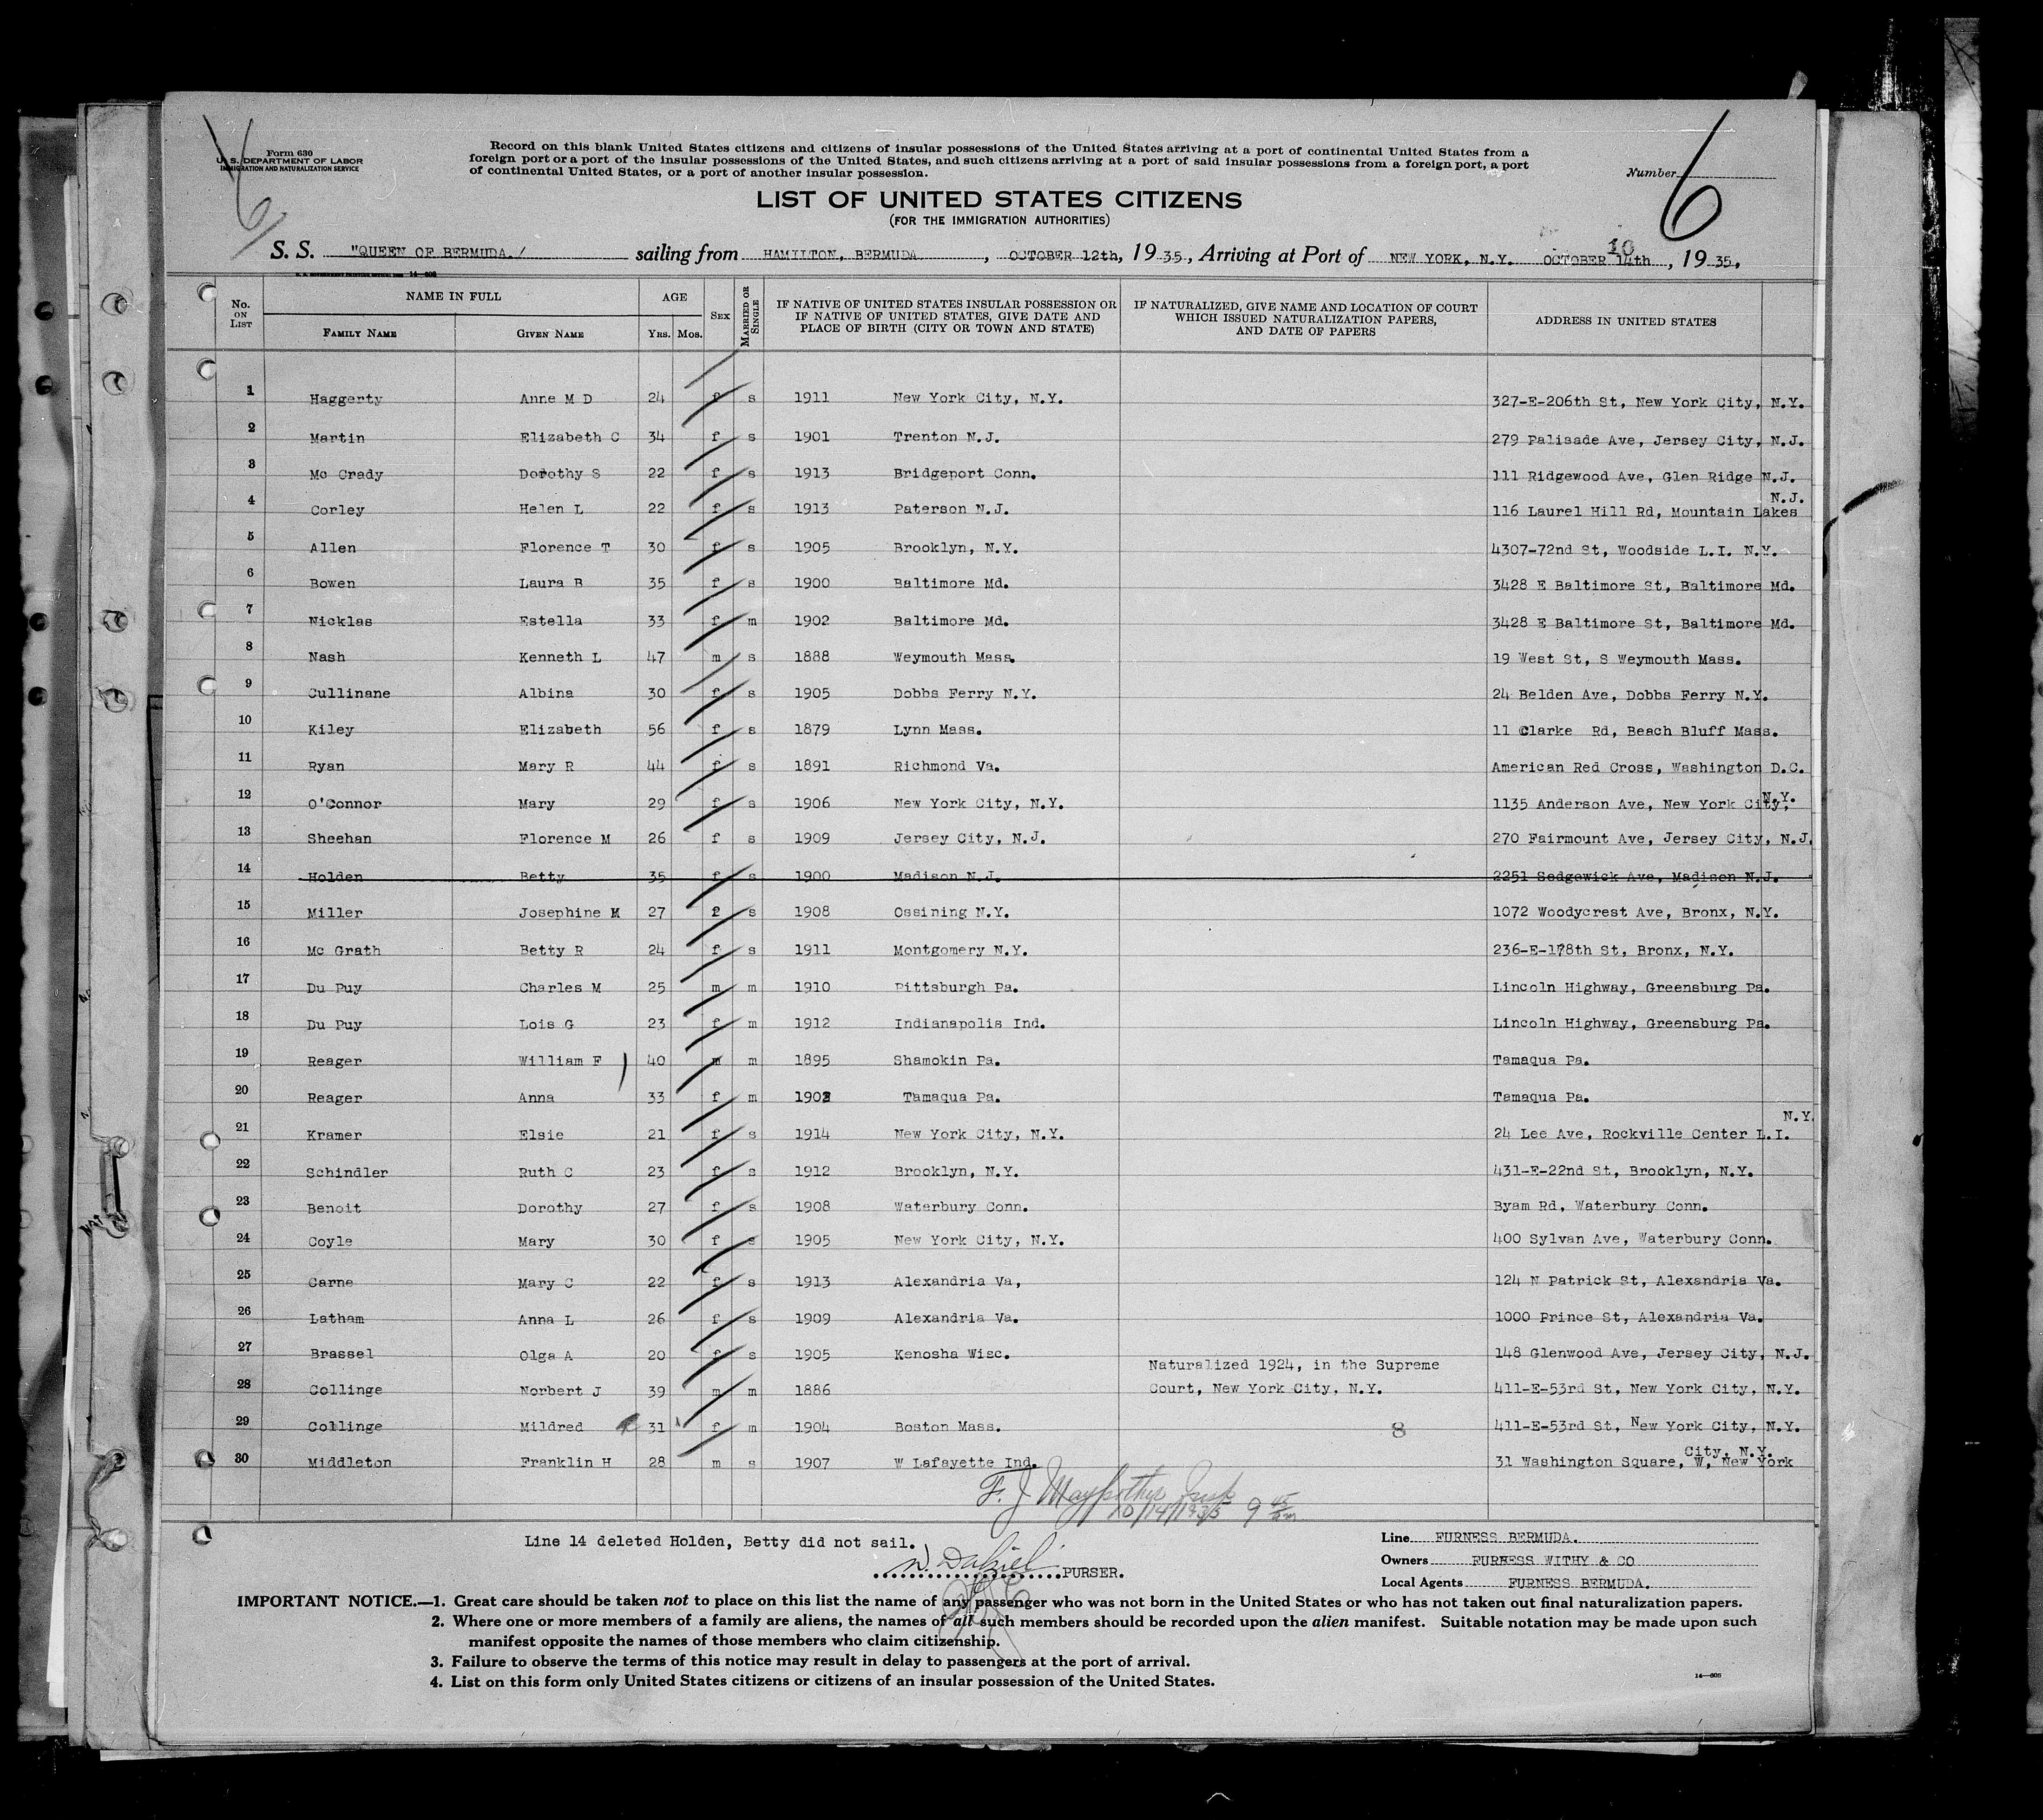 Form 630
U. S. DEPARTMENT OF LABOR
IMMIGRATION AND NATURALIZATION SERVICE
Record on this blank United States citizens and citizens of insular possessions of the United States arriving at a port of continental United States from a
foreign port or a port of the insular possessions of the United States, and such citizens arriving at a port of said insular possessions from a foreign port, a port
of continental United States, or a port of another insular possession.
Number 6
6
LIST OF UNITED STATES CITIZENS
(FOR THE IMMIGRATION AUTHORITIES)
S. S. "QUEEN OF BERMUDA./ sailing from HAMILTON, BERMUDA , OCTOBER 12th, 19 35, Arriving at Port of NEW YORK, N.Y. OCTOBER 14th , 19 35.
10
No. ON LIST NAME IN FULL AGE SEX MARRIED OR SINGLE IF NATIVE OF UNITED STATES INSULAR POSSESSION OR IF NATIVE OF UNITED STATES, GIVE DATE AND PLACE OF BIRTH (CITY OR TOWN AND STATE) IF NATURALIZED, GIVE NAME AND LOCATION OF COURT WHICH ISSUED NATURALIZATION PAPERS, AND DATE OF PAPERS ADDRESS IN UNITED STATES
FAMILY NAME GIVEN NAME YRS. MOS.
1 Haggerty Anne M D 24 f s 1911 New York City, N.Y. 327-E-206th St, New York City, N.Y.
2 Martin Elizabeth C 34 f s 1901 Trenton N.J. 279 Palisade Ave, Jersey City, N.J.
3 Mc Crady Dorothy S 22 f s 1913 Bridgeport Conn. 111 Ridgewood Ave, Glen Ridge N.J.
4 Corley Helen L 22 f s 1913 Paterson N.J. 116 Laurel Hill Rd, Mountain Lakes N.J.
5 Allen Florence T 30 f s 1905 Brooklyn, N.Y. 4307-72nd St, Woodside L.I. N.Y.
6 Bowen Laura B 35 f s 1900 Baltimore Md. 3428 E Baltimore St, Baltimore Md.
7 Nicklas Estella 33 f m 1902 Baltimore Md. 3428 E Baltimore St, Baltimore Md.
8 Nash Kenneth L 47 m s 1888 Weymouth Mass. 19 West St, S Weymouth Mass.
9 Cullinane Albina 30 f s 1905 Dobbs Ferry N.Y. 24 Belden Ave, Dobbs Ferry N.Y.
10 Kiley Elizabeth 56 f s 1879 Lynn Mass. 11 Clarke Rd, Beach Bluff Mass.
11 Ryan Mary R 44 f s 1891 Richmond Va. American Red Cross, Washington D.C.
12 O'Connor Mary 29 f s 1906 New York City, N.Y. 1135 Anderson Ave, New York City, N.Y.
13 Sheehan Florence M 26 f s 1909 Jersey City, N.J. 270 Fairmount Ave, Jersey City, N.J.
14 Holden Betty 35 f s 1900 Madison N.J. 2251 Sedgewick Ave, Madison N.J.
15 Miller Josephine M 27 f s 1908 Ossining N.Y. 1072 Woodycrest Ave, Bronx, N.Y.
16 Mc Grath Betty R 24 f s 1911 Montgomery N.Y. 236-E-178th St, Bronx, N.Y.
17 Du Puy Charles M 25 m m 1910 Pittsburgh Pa. Lincoln Highway, Greensburg Pa.
18 Du Puy Lois G 23 f m 1912 Indianapolis Ind. Lincoln Highway, Greensburg Pa.
19 Reager William F 40 m m 1895 Shamokin Pa. Tamaqua Pa.
20 Reager Anna 33 f m 1902 Tamaqua Pa. Tamaqua Pa.
21 Kramer Elsie 21 f s 1914 New York City, N.Y. 24 Lee Ave, Rockville Center L.I. N.Y.
22 Schindler Ruth C 23 f s 1912 Brooklyn, N.Y. 431-E-22nd St, Brooklyn, N.Y.
23 Benoit Dorothy 27 f s 1908 Waterbury Conn. Byam Rd, Waterbury Conn.
24 Coyle Mary 30 f s 1905 New York City, N.Y. 400 Sylvan Ave, Waterbury Conn.
25 Carne Mary C 22 f s 1913 Alexandria Va, 124 N Patrick St, Alexandria Va.
26 Latham Anna L 26 f s 1909 Alexandria Va. 1000 Prince St, Alexandria Va.
27 Brassel Olga A 20 f s 1905 Kenosha Wisc. 148 Glenwood Ave, Jersey City, N.J.
28 Collinge Norbert J 39 m m 1886 Naturalized 1924, in the Supreme Court, New York City, N.Y. 411-E-53rd St, New York City, N.Y.
29 Collinge Mildred 31 f m 1904 Boston Mass. 8 411-E-53rd St, New York City, N.Y.
30 Middleton Franklin H 28 m s 1907 W Lafayette Ind. 31 Washington Square, W, New York City, N.Y.
F. J. Insp
10/14/1935 9 45 am
Line 14 deleted Holden, Betty did not sail.
N. Dalziel PURSER.
Line FURNESS BERMUDA.
Owners FURNESS WITHY & CO
Local Agents FURNESS BERMUDA.
IMPORTANT NOTICE.—1. Great care should be taken not to place on this list the name of any passenger who was not born in the United States or who has not taken out final naturalization papers.
2. Where one or more members of a family are aliens, the names of all such members should be recorded upon the alien manifest. Suitable notation may be made upon such
manifest opposite the names of those members who claim citizenship.
3. Failure to observe the terms of this notice may result in delay to passengers at the port of arrival.
4. List on this form only United States citizens or citizens of an insular possession of the United States.
14—608